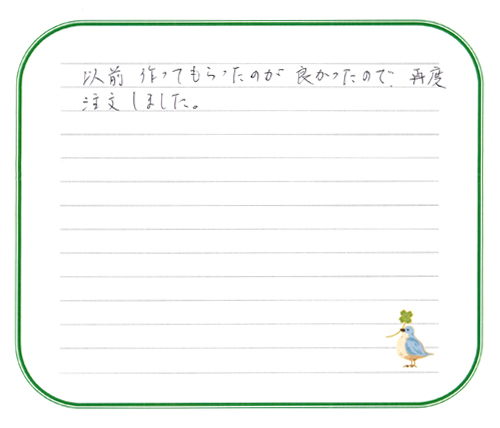 以前 作ってもらったのが 良かったので、再度
注文しました。